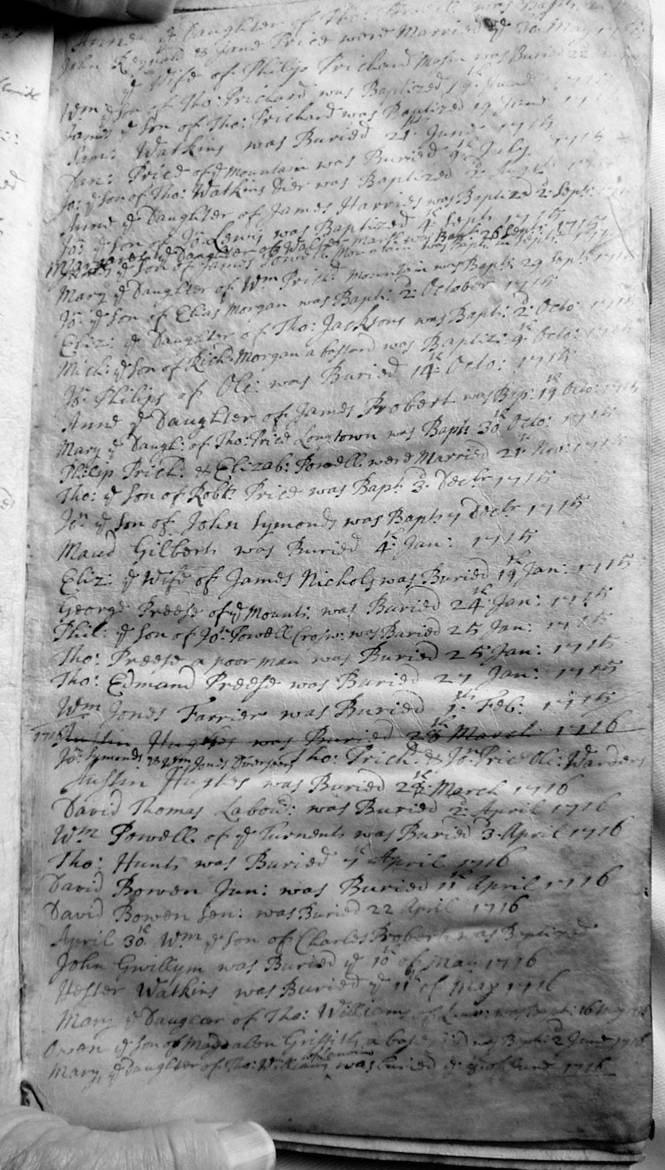 Anne ye Daughter of Tho: was Bapt:
John Reynold & Jane Price were Married ye 30 May
ye Wife of Philip Prichard Mason was Buried 22
Wm ye Son of Tho: Prichard was Baptized 19 June
James ye Son of Tho: Prichard was Baptized 19 June
Watkins was Buried 21 June 1715
Price of ye Mountain was Buried 9th July
Jo: ye Son of Tho: Watkins Dier was Baptized
Anne ye Daughter of James Harries was Baptized 2: Sept:
Ja: ye Son of Jo: Lewis was Baptized 4th Sept: 1715
ye Daughter of was Bapt: 26 Sept: 1715
ye Son of James Mountain was Bapt:
Mary ye Daughter of Wm Prich: Mountain was Bapt: 29 Sept: 1715
Jo: ye Son of Elias Morgan was Bapt: 2: October 1715
Eliz: ye Daughter of Tho: Jacksons was Bapt: 2: Octo: 1715
Mich: ye Son of Rich: Morgan a bastard was Baptiz: 9th Octo: 1715
Jo: Philips of Ole: was Buried 14th Octo: 1715
Anne ye Daughter of James Probert was Bap: 19 Octo: 1715
Mary ye Daugh: of Tho: Price Longtown was Bapt: 30th Octo: 1715
Philip Prich: & Elizab: Powell were Married 21st Nov: 1715
Tho: ye Son of Robt: Price was Bapt: 3 Decbr 1715
Jo: ye Son of John Symonds was Bapt: 7 Decbr 1715
Maud Gilbert was Buried 4th Jan: 1715
Eliz: ye Wife of James Nichols was Buried 19th Jan: 1715
George Preese of ye Mount: was Buried 24th Jan: 1715
Phil: ye Son of Jo: Powell was Buried 25 Jan: 1715
Tho: Preese a poor man was Buried 25 Jan: 1715
Tho: Edmand Preese was Buried 27 Jan: 1715
Wm Jones Farrier was Buried 1st Feb: 1715
Austin Hughes was Buried 28th March 1716
Jo: Symonds & Wm Jones Tho: Prich: & Jo: Price Ole: Wardens
Austin Hughes was Buried 28th March 1716
David Thomas Labou: was Buried 2: April 1716
Wm Powell of ye Turnents was Buried 3 April 1716
Tho: Hunt was Buried 7 April 1716
David Bowen Jun: was Buried 11th April 1716
David Bowen Sen: was Buried 22 April 1716
April 30th Wm ye Son of Charles Probert was Baptized
John Gwillym was Buried ye 10th of May 1716
Hester Watkins was Buried ye 11th of May 1716
Mary ye Daugter of Tho: William of was Bapt: 16 May
Owen ye Son of Magdalen Griffith a was Bapt: 2 June 1716
Mary ye Daughter of Tho: William was Buried ye of June 1716